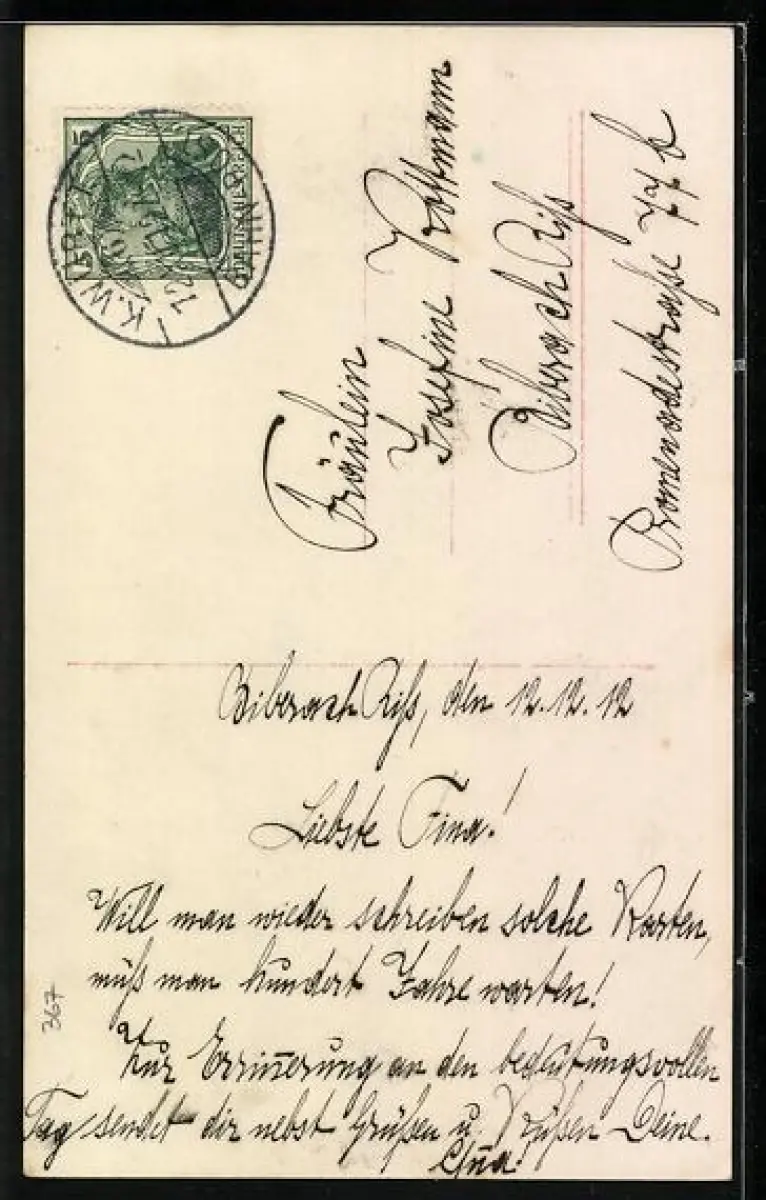 DEUTSCHES REICH
5 5
K. WÜRTT.
12.12.12
Fräulein
Josefine Rottmann
Biberach Riß
Promenadestraße 77 b
Biberach Riß, den 12.12.12
Liebste Fina!
Will man wieder schreiben solche Karten,
muß man hundert Jahre warten!
Zur Erriñerung an den bedeutungsvollen
Tag sendet dir nebst Grüßen u. Küßen Deine.
367